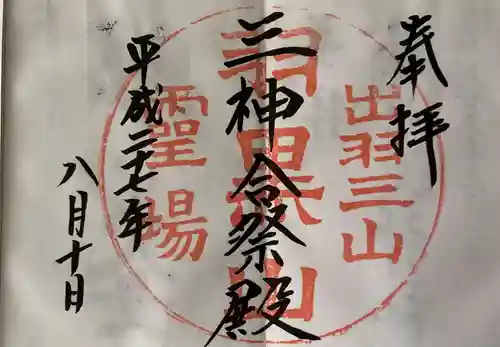 奉拝
出羽三山
羽黒山
霊場
三神合祭殿
平成二十七年
八月十日